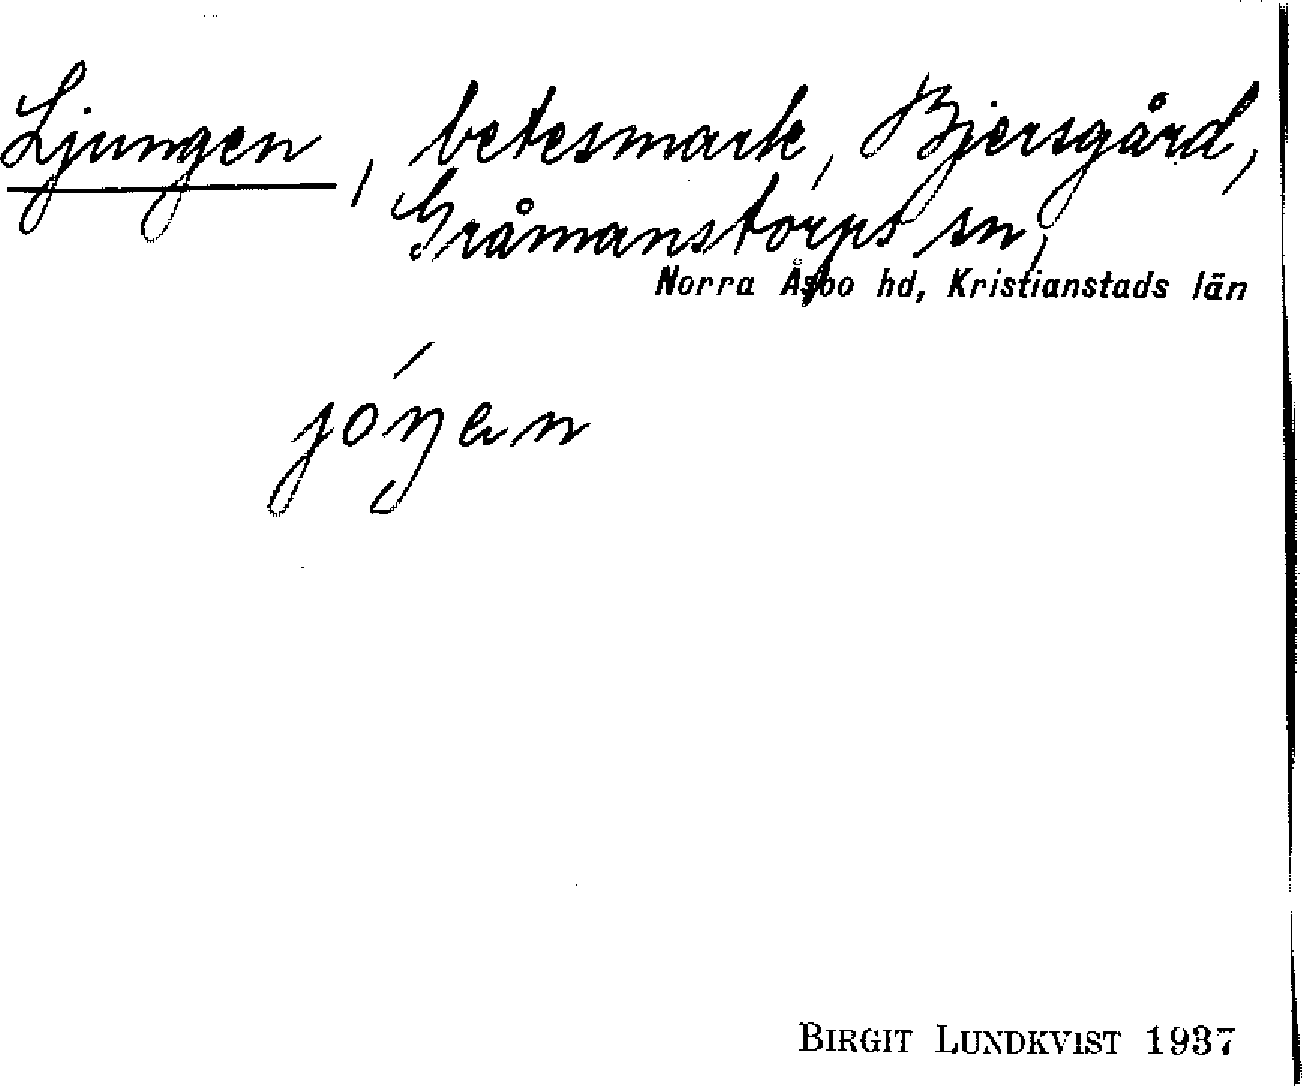 Ljungen, betesmark, Bjersgård,
Gråmanstorps sn,
Norra Åsbo hd, Kristianstads län
jóŋen
BIRGIT LUNDKVIST 1937